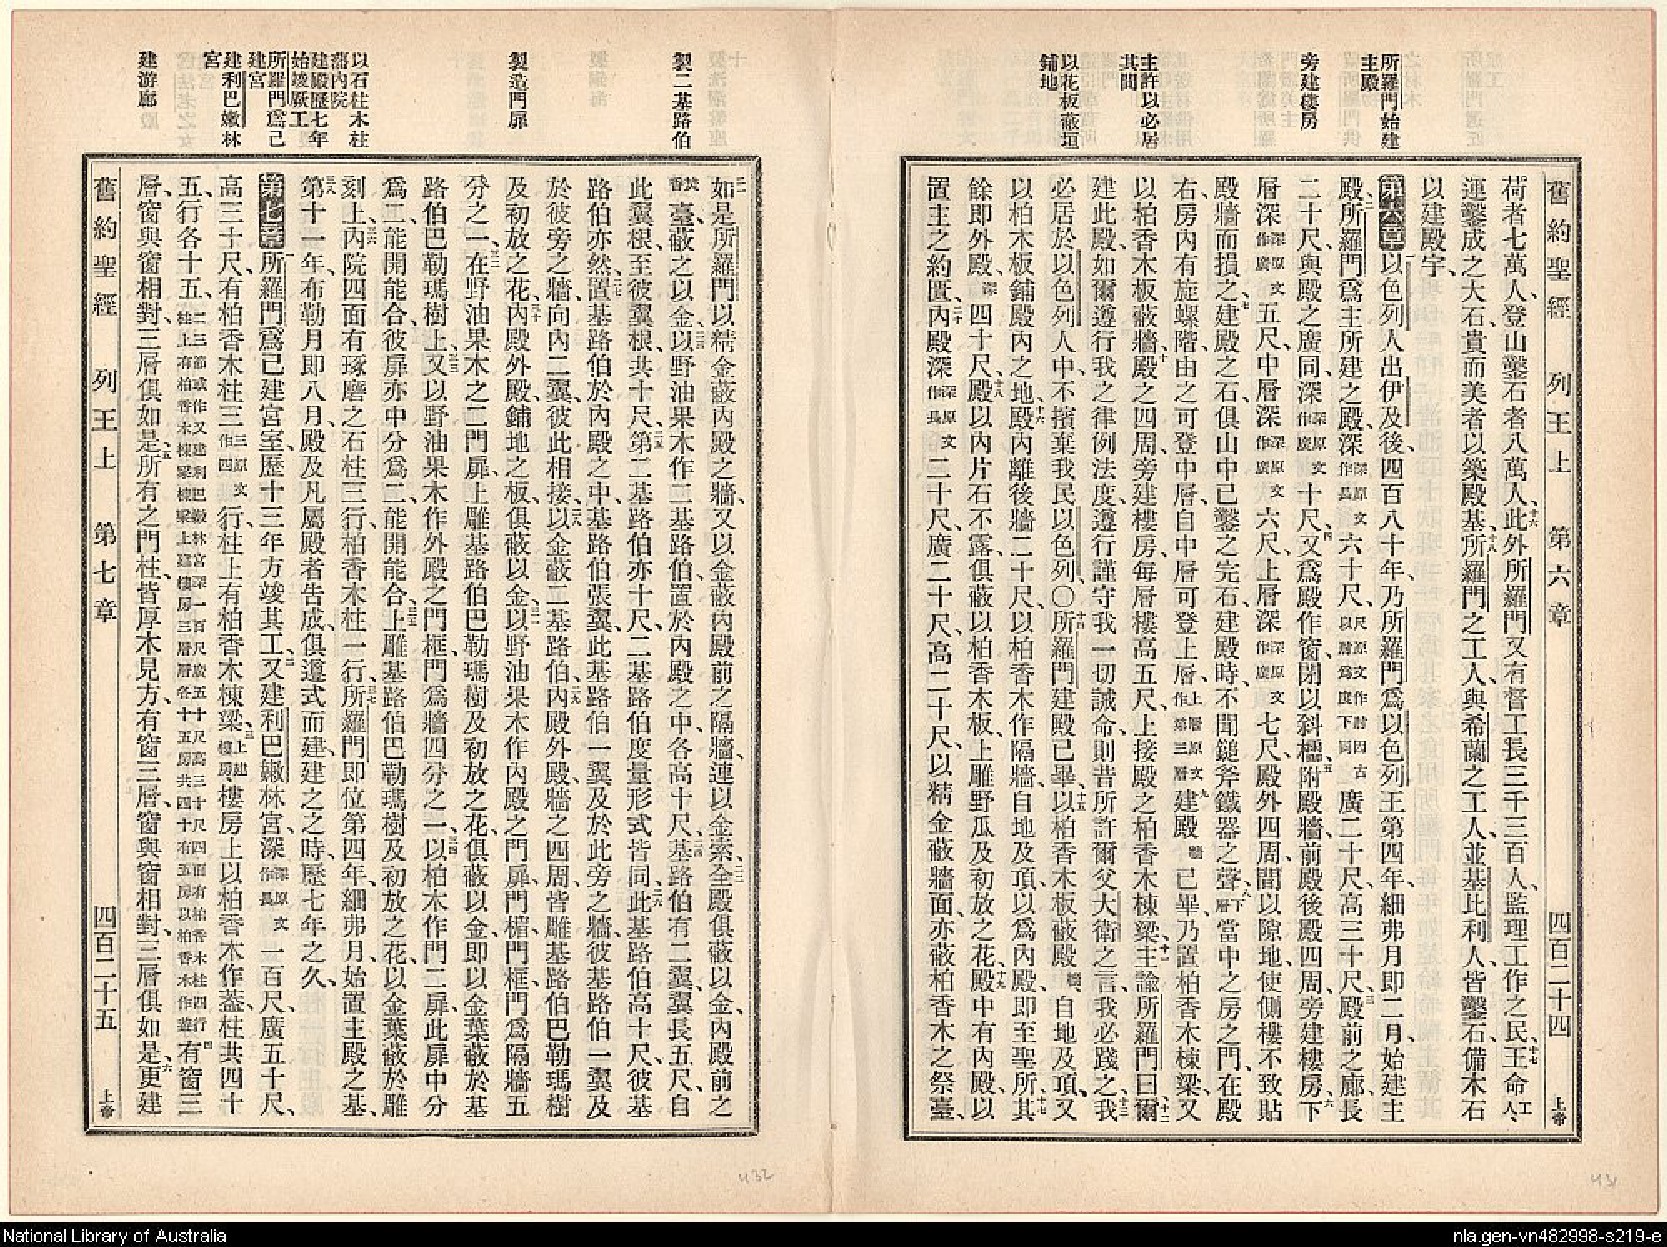 舊約聖經 列王上 第六章 四百二十四 上帝
所羅門始建
主殿
旁建樓房
主許以必居
其間
以花板蔽垣
鋪地
荷者七萬人、登山鑿石者八萬人、十六此外所羅門又有督工長三千三百人、監理工作之民、十七王命工人
運鑿成之大石、貴而美者以築殿基、十八所羅門之工人、與希蘭之工人、並基比利人、皆鑿石備木石
以建殿宇、
第六章 一以色列人出伊及後、四百八十年、乃所羅門爲以色列王第四年、細弗月、即二月、始建主
殿、二所羅門爲主所建之殿、深深原文作長六十尺、尺原文作肘因古以肘爲度下同廣二十尺、高三十尺、三殿前之廊、長
二十尺、與殿之廣同、深深原文作廣十尺、四又爲殿作窗、閉以斜櫺、五附殿牆前殿後殿四周、旁建樓房、六下
層深深原文作廣五尺、中層深深原文作廣六尺、上層深深原文作廣七尺、殿外四周、間以隙地、使側樓不致貼
殿牆而損之、七建殿之石、俱山中已鑿之完石、建殿時、不聞鎚斧鐵器之聲、八下層當中之房之門、在殿
右、房內有旋螺階、由之可登中層、自中層可登上層、上層原文作第三層九建殿牆已畢、乃置柏香木棟梁、又
以柏香木板蔽牆、十殿之四周、旁建樓房、每層樓高五尺、上接殿之柏香木棟梁、十一主諭所羅門曰、十二爾
建此殿、如爾遵行我之律例法度、遵行謹守我一切誡命、則昔所許爾父大衛之言、我必踐之、十三我
必居於以色列人中、不擯棄我民以色列、〇十四所羅門建殿已畢、十五以柏香木板蔽殿牆、自地及頂、又
以柏木板鋪殿內之地、十六殿內離後牆二十尺、以柏香木作隔牆、自地及頂、以爲內殿、即至聖所、十七其
餘即外殿、深四十尺、十八殿以內片石不露、俱蔽以柏香木板、上雕野瓜及初放之花、十九殿中有內殿、以
置主之約匱、二十內殿深深原文作長二十尺、廣二十尺、高二十尺、以精金蔽牆面、亦蔽柏香木之祭臺、
製二基路伯
製造門扉
以石柱木柱
薦內院
建殿歷七年
始竣厥工
所羅門爲己
建宮
建利巴嫩林
宮
建游廊
二一如是所羅門以精金蔽內殿之牆、又以金蔽內殿前之隔牆、連以金索、二二全殿俱蔽以金、內殿前之
焚香臺、蔽之以金、二三以野油果木作二基路伯、置於內殿之中、各高十尺、二四基路伯有二翼、翼長五尺、自
此翼根、至彼翼根、共十尺、二五第二基路伯亦十尺、二基路伯度量形式皆同、二六此基路伯高十尺、彼基
路伯亦然、二七置基路伯於內殿之中、基路伯張翼、此基路伯一翼及於此旁之牆、彼基路伯一翼及
於彼旁之牆、向內二翼、彼此相接、二八以金蔽二基路伯、二九內殿外殿、牆之四周、皆雕基路伯、巴勒瑪樹、
及初放之花、三十內殿外殿、鋪地之板、俱蔽以金、三一以野油果木作內殿之門扉、門楣門框、門爲隔牆五
分之一、三二在野油果木之二門扉、上雕基路伯巴勒瑪樹、及初放之花、俱蔽以金、即以金葉蔽於基
路伯巴勒瑪樹上、三三又以野油果木作外殿之門框、門爲牆四分之一、三四以柏木作門二扉、此扉中分
爲二、能開能合、彼扉亦中分爲二、能開能合、三五上雕基路伯巴勒瑪樹及初放之花、以金葉蔽於雕
刻上、三六內院四面有琢磨之石柱三行、柏香木柱一行、三七所羅門即位第四年、細弗月、始置主殿之基、
三八第十一年、布勒月、即八月、殿及凡屬殿者告成、俱遵式而建、建之之時、歷七年之久、
第七章 一所羅門爲己建宮室、歷十三年、方竣其工、二又建利巴嫩林宮、深深原文作長一百尺、廣五十尺、
高三十尺、有柏香木柱三三原文作四行、柱上有柏香木棟梁、三上建樓房樓房上以柏香木作蓋、柱共四十
五、行各十五、二三節或作又建利巴嫩林宮深一百尺廣五十尺高三十尺四面有柏香木柱四行柱上有柏香木棟梁棟梁上建樓房三層層各十五房共四十有五房以柏香木作蓋四有窗三
層、窗與窗相對、三層俱如是、五所有之門柱、皆厚木見方、有窗三層、窗與窗相對、三層俱如是、六更建
舊約聖經 列王上 第七章 四百二十五 上帝
432
431
National Library of Australia
nla.gen-vn482998-s219-e